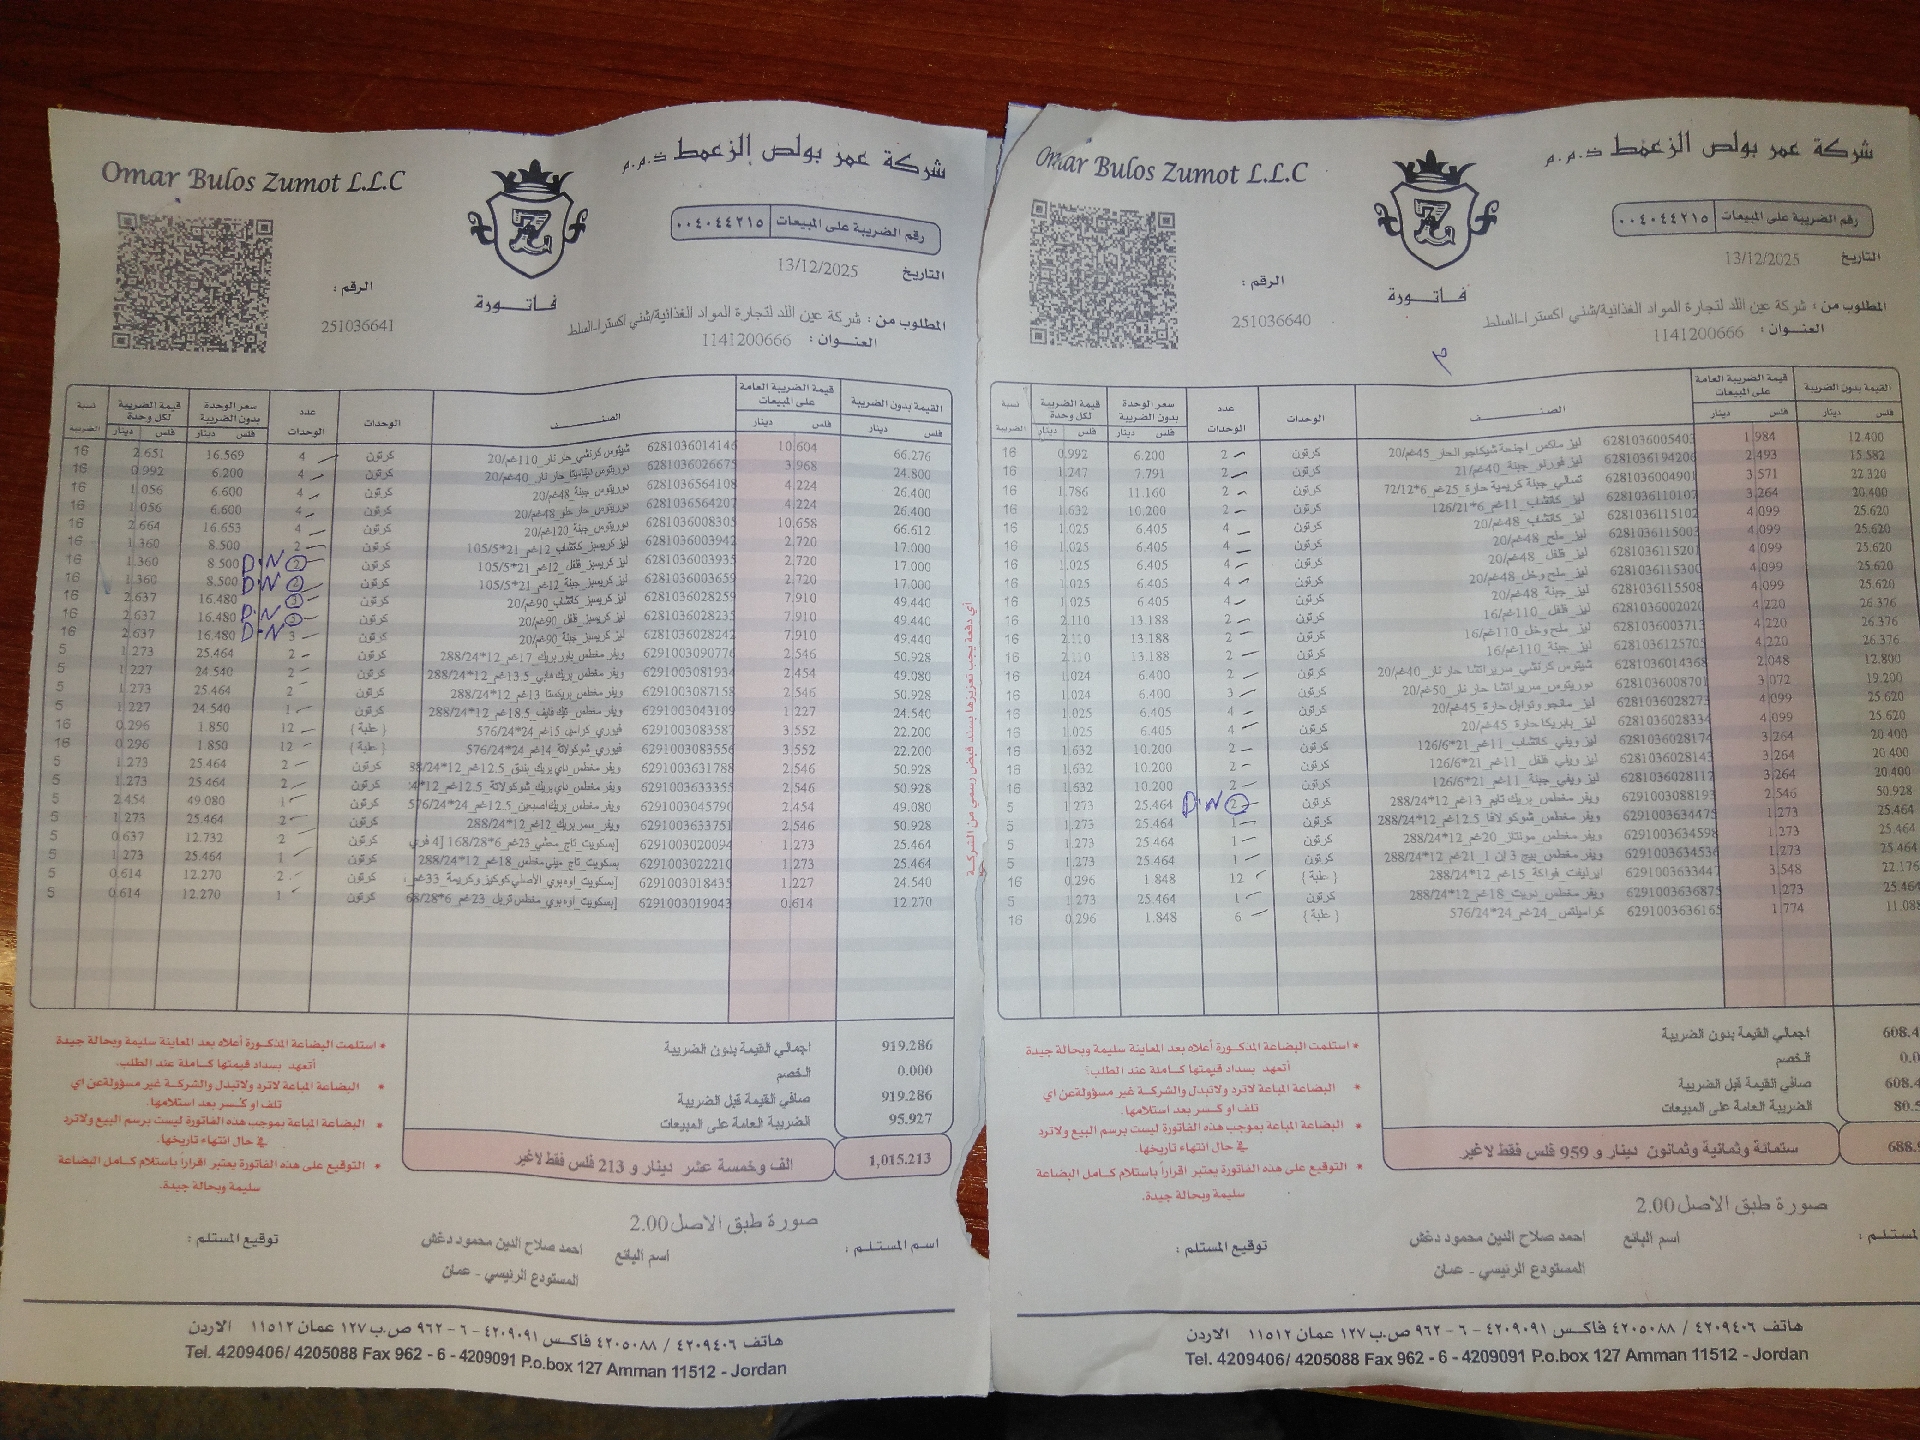 Omar Bulos Zumot L.L.C
شركة عمر بولص الزعمط ذ.م.م
رقم الضريبة على المبيعات ٠٠٤٠٤٤٢١٥
التاريخ 13/12/2025
فاتورة
الرقم :
251036641
المطلوب من : شركة عين اللد لتجارة المواد الغذائية/شني اكسترا-السلط
العنوان : 1141200666
القيمة بدون الضريبة قيمة الضريبة العامة على المبيعات الصنف الوحدات عدد الوحدات سعر الوحدة بدون الضريبة قيمة الضريبة لكل وحدة نسبة الضريبة
دينار فلس دينار فلس دينار فلس دينار فلس
66.276 10.604 6281036014146 شيتوس كرنشي حر نار_110غم/20 كرتون 4 16.569 2.651 16
24.800 3.968 6281036026675 كرتون 4 6.200 0.992 16
26.400 4.224 6281036564108 دوريتوس_جبنة 48غم/20 كرتون 4 6.600 1.056 16
26.400 4.224 6281036564207 دوريتوس_حار حلو_48غم/20 كرتون 4 6.600 1.056 16
66.612 10.658 6281036008305 دوريتوس_جبنة 120غم/20 كرتون 4 16.653 2.664 16
17.000 2.720 6281036003942 ليز كريسبز_كاتشاب_12غم_21*105/5 كرتون 2 8.500 1.360 16
17.000 2.720 6281036003935 ليز كريسبز_فلفل_12غم_21*105/5 كرتون 2 D.N 8.500 1.360 16
17.000 2.720 6281036003659 ليز كريسبز_جبنة_12غم_21*105/5 كرتون 2 D.N 8.500 1.360 16
49.440 7.910 6281036028259 ليز كريسبز_كاتشاب_90غم/20 كرتون 3 16.480 2.637 16
49.440 7.910 6281036028235 ليز كريسبز_فلفل_90غم/20 كرتون 3 D.N 16.480 2.637 16
49.440 7.910 6281036028242 ليز كريسبز_جبنة_90غم/20 كرتون 3 D.N 16.480 2.637 16
50.928 2.546 6291003090776 ويفر مغطس_باور بريك_17غم_12*288/24 كرتون 2 25.464 1.273 5
49.080 2.454 6291003081934 ويفر مغطس_بريك هابي_13.5غم_12*288/24 كرتون 2 24.540 1.227 5
50.928 2.546 6291003087158 ويفر مغطس_بريكستا 13غم_12*288/24 كرتون 2 25.464 1.273 5
24.540 1.227 6291003043109 ويفر مغطس_تيك فايف_18.5غم_12*288/24 كرتون 1 24.540 1.227 5
22.200 3.552 6291003083587 فيوري كراميل_15غم_24*576/24 { علبة } 12 1.850 0.296 16
22.200 3.552 6291003083556 فيوري_شوكولاتة_14غم_24*576/24 { علبة } 12 1.850 0.296 16
50.928 2.546 6291003631788 ويفر مغطس_داي بريك_بندق_12.5غم_12*38/24 كرتون 2 25.464 1.273 5
50.928 2.546 6291003633355 ويفر مغطس_داي بريك_شوكولاتة_12.5غم_12*4 كرتون 2 25.464 1.273 5
49.080 2.454 6291003045790 ويفر مغطس_بريك اصبعين_12.5غم_24*576/24 كرتون 1 49.080 2.454 5
50.928 2.546 6291003633751 ويفر_سمر بريك_12غم_12*288/24 كرتون 2 25.464 1.273 5
25.464 1.273 6291003020094 بسكويت_تاج_محشي_23غم_6*168/28 [4 كرتون 2 12.732 0.637 5
25.464 1.273 6291003022210 بسكويت_تاج_ميني_مغطس_18غم_12*288/24 كرتون 1 25.464 1.273 5
24.540 1.227 6291003018435 بسكويت_اوه بوي_الاصلي_كوكيز وكريمة_33غم_ كرتون 2 12.270 0.614 5
12.270 0.614 6291003019043 بسكويت_اوه بوي_مغطس_تريل_23غم_6*68/28 كرتون 1 12.270 0.614 5
اجمالي القيمة بدون الضريبة 919.286
الخصم 0.000
صافي القيمة قبل الضريبة 919.286
الضريبة العامة على المبيعات 95.927
الف وخمسة عشر دينار و 213 فلس فقط لاغير 1,015.213
* استلمت البضاعة المذكورة أعلاه بعد المعاينة سليمة وبحالة جيدة
أتعهد بسداد قيمتها كاملة عند الطلب.
* البضاعة المباعة لاترد ولاتبدل والشركة غير مسؤولة عن اي
تلف او كسر بعد استلامها.
* البضاعة المباعة بموجب هذه الفاتورة ليست برسم البيع ولاترد
في حال انتهاء تاريخها.
* التوقيع على هذه الفاتورة يعتبر اقراراً باستلام كامل البضاعة
سليمة وبحالة جيدة.
أي دفعة يجب تعزيزها بسند قبض رسمي من الشركة
صورة طبق الاصل 2.00
اسم المستلم : اسم البائع احمد صلاح الدين محمود دغش توقيع المستلم :
المستودع الرئيسي - عمان
هاتف ٤٢٠٩٤٠٦ / ٤٢٠٥٠٨٨ فاكس ٤٢٠٩٠٩١ - ٦ - ٩٦٢ ص.ب ١٢٧ عمان ١١٥١٢ الاردن
Tel. 4209406/ 4205088 Fax 962 - 6 - 4209091 P.o.box 127 Amman 11512 - Jordan
Omar Bulos Zumot L.L.C
شركة عمر بولص الزعمط ذ.م.م
رقم الضريبة على المبيعات ٠٠٤٠٤٤٢١٥
التاريخ 13/12/2025
فاتورة
الرقم :
251036640
المطلوب من : شركة عين اللد لتجارة المواد الغذائية/شني اكسترا-السلط
العنوان : 1141200666
القيمة بدون الضريبة قيمة الضريبة العامة على المبيعات الصنف الوحدات عدد الوحدات سعر الوحدة بدون الضريبة قيمة الضريبة لكل وحدة نسبة الضريبة
دينار فلس دينار فلس دينار فلس دينار
12.400 1.984 6281036005403 ليز ماكس_اجنحة شيكاجو الحار_45غم/20 كرتون 2 6.200 0.992 16
15.582 2.493 6281036194206 ليز فورنو_جبنة_40غم/21 كرتون 2 7.791 1.247 16
22.320 3.571 6281036004901 تسالي_جبنة كريمية حارة_25غم_6*72/12 كرتون 2 11.160 1.786 16
20.400 3.264 6281036110107 ليز_كاتشاب_11غم_6*126/21 كرتون 2 10.200 1.632 16
25.620 4.099 6281036115102 ليز_كاتشاب_48غم/20 كرتون 4 6.405 1.025 16
25.620 4.099 6281036115003 ليز_ملح_48غم/20 كرتون 4 6.405 1.025 16
25.620 4.099 6281036115201 ليز_فلفل_48غم/20 كرتون 4 6.405 1.025 16
25.620 4.099 6281036115300 ليز_ملح وخل_48غم/20 كرتون 4 6.405 1.025 16
25.620 4.099 6281036115508 ليز_جبنة_48غم/20 كرتون 4 6.405 1.025 16
26.376 4.220 6281036002020 ليز_فلفل_110غم/16 كرتون 2 13.188 2.110 16
26.376 4.220 6281036003713 ليز_ملح وخل_110غم/16 كرتون 2 13.188 2.110 16
26.376 4.220 6281036125705 ليز_جبنة_110غم/16 كرتون 2 13.188 2.110 16
12.800 2.048 6281036014368 شيتوس كرنشي_سريراتشا حار نار_40غم/20 كرتون 2 6.400 1.024 16
19.200 3.072 6281036008701 دوريتوس_سريراتشا حار نار_50غم/20 كرتون 3 6.400 1.024 16
25.620 4.099 6281036028273 ليز_مانجو وتوابل حارة_45غم/20 كرتون 4 6.405 1.025 16
25.620 4.099 6281036028334 ليز_بابريكا حارة_45غم/20 كرتون 4 6.405 1.025 16
20.400 3.264 6281036028174 ليز ويفي_كاتشاب_11غم_21*126/6 كرتون 2 10.200 1.632 16
20.400 3.264 6281036028143 ليز ويفي_فلفل_11غم_21*126/6 كرتون 2 10.200 1.632 16
20.400 3.264 6281036028117 ليز ويفي_جبنة_11غم_21*126/6 كرتون 2 10.200 1.632 16
50.928 2.546 6291003088193 ويفر مغطس_بريك تايم_13غم_12*288/24 كرتون 2 D.N 25.464 1.273 5
25.464 1.273 6291003634475 ويفر مغطس_شوكو لافا_12.5غم_12*288/24 كرتون 1 25.464 1.273 5
25.464 1.273 6291003634598 ويفر مغطس_مونتاز_20غم_12*288/24 كرتون 1 25.464 1.273 5
25.464 1.273 6291003634536 ويفر مغطس_بيج 3 ان 1_21غم_12*288/24 كرتون 1 25.464 1.273 5
22.176 3.548 6291003633447 ايرليفت_فواكة_15غم_12*288/24 { علبة } 12 1.848 0.296 16
25.464 1.273 6291003636875 ويفر مغطس_تويت_18غم_12*288/24 كرتون 1 25.464 1.273 5
11.088 1.774 6291003636165 كراميلتس_24غم_24*576/24 { علبة } 6 1.848 0.296 16
اجمالي القيمة بدون الضريبة 608.4
الخصم 0.0
صافي القيمة قبل الضريبة 608.4
الضريبة العامة على المبيعات 80.5
ستمائة وثمانية وثمانون دينار و 959 فلس فقط لاغير 688.9
* استلمت البضاعة المذكورة أعلاه بعد المعاينة سليمة وبحالة جيدة
أتعهد بسداد قيمتها كاملة عند الطلب.
* البضاعة المباعة لاترد ولاتبدل والشركة غير مسؤولة عن اي
تلف او كسر بعد استلامها.
* البضاعة المباعة بموجب هذه الفاتورة ليست برسم البيع ولاترد
في حال انتهاء تاريخها.
* التوقيع على هذه الفاتورة يعتبر اقراراً باستلام كامل البضاعة
سليمة وبحالة جيدة.
صورة طبق الاصل 2.00
المستلم : اسم البائع احمد صلاح الدين محمود دغش توقيع المستلم :
المستودع الرئيسي - عمان
هاتف ٤٢٠٩٤٠٦ / ٤٢٠٥٠٨٨ فاكس ٤٢٠٩٠٩١ - ٦ - ٩٦٢ ص.ب ١٢٧ عمان ١١٥١٢ الاردن
Tel. 4209406/ 4205088 Fax 962 - 6 - 4209091 P.o.box 127 Amman 11512 - Jordan